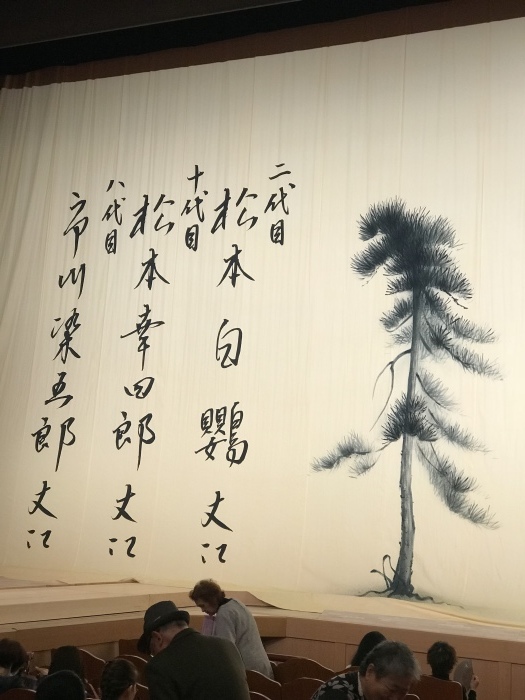 二代目
松本白鸚丈江
十代目
松本幸四郎丈江
八代目
市川染五郎丈江